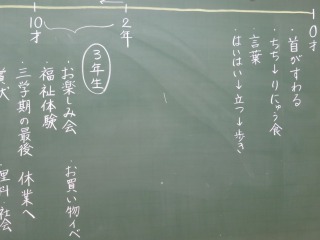 0才
・首がすわる
・ちち→りにゅう食
・言葉
・はいはい→立つ→歩き
2年
10才
3年生
・お楽しみ会 ・お買い物イベ
・福祉体験
・三学期の最後 休業へ
賞状 ・理科・社会